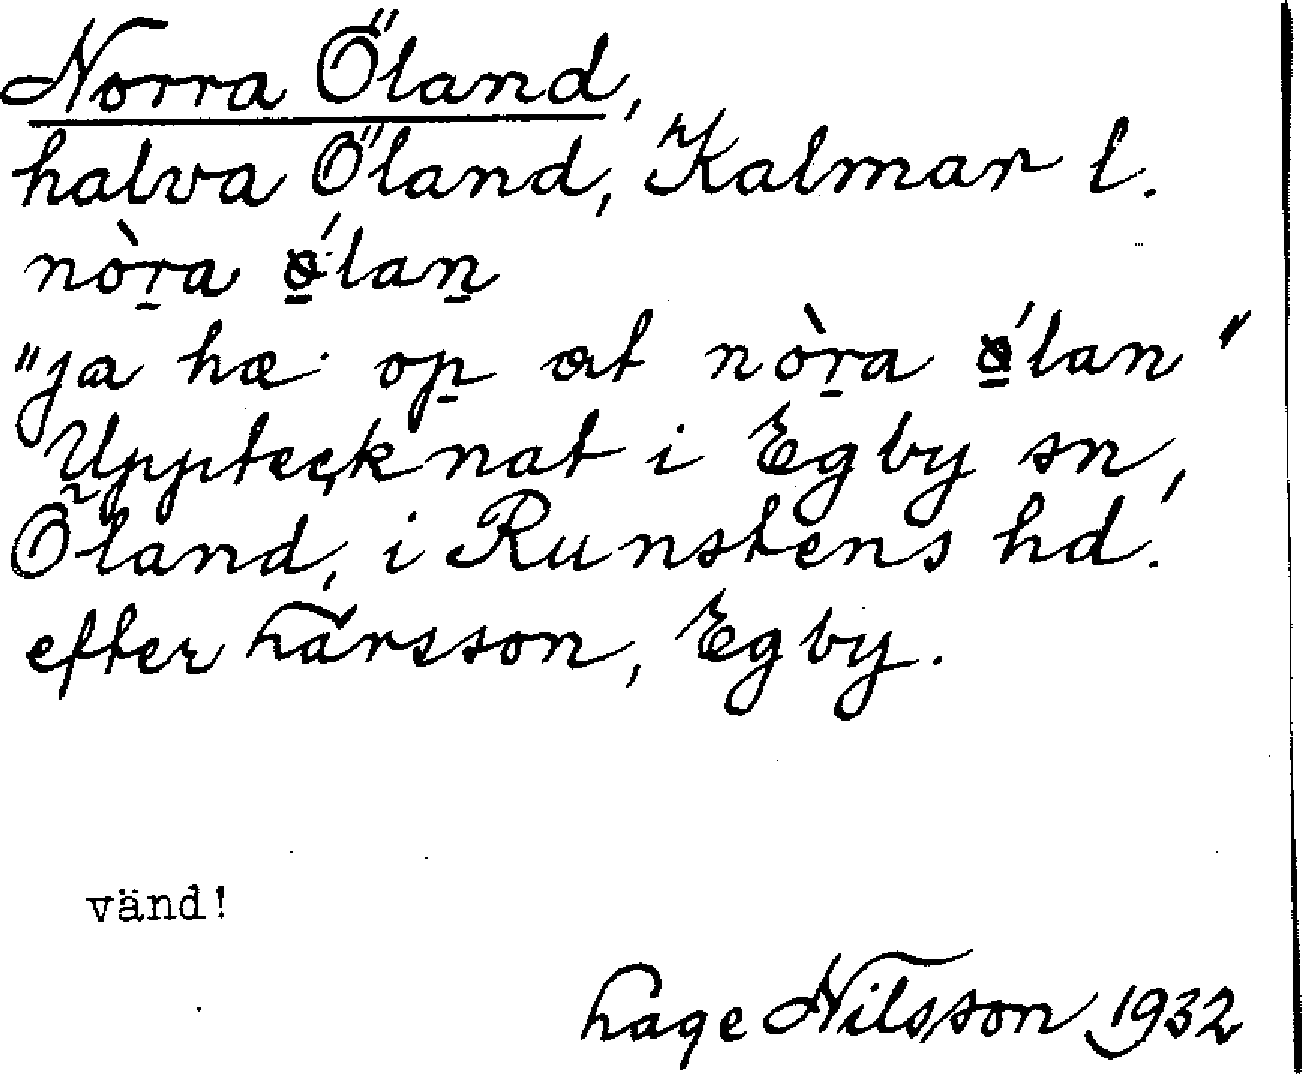 Norra Öland,
halva Öland, Kalmar l.
nòṟa ǿ̱laṉ
"ja hæ· op̱ æt nòṟa ǿ̱lan"
Uppteck̦nat i Egby sn,
Öland, i Runstens hd.
efter Larsson, Egby.
vänd!
Lage Nilsson 1932